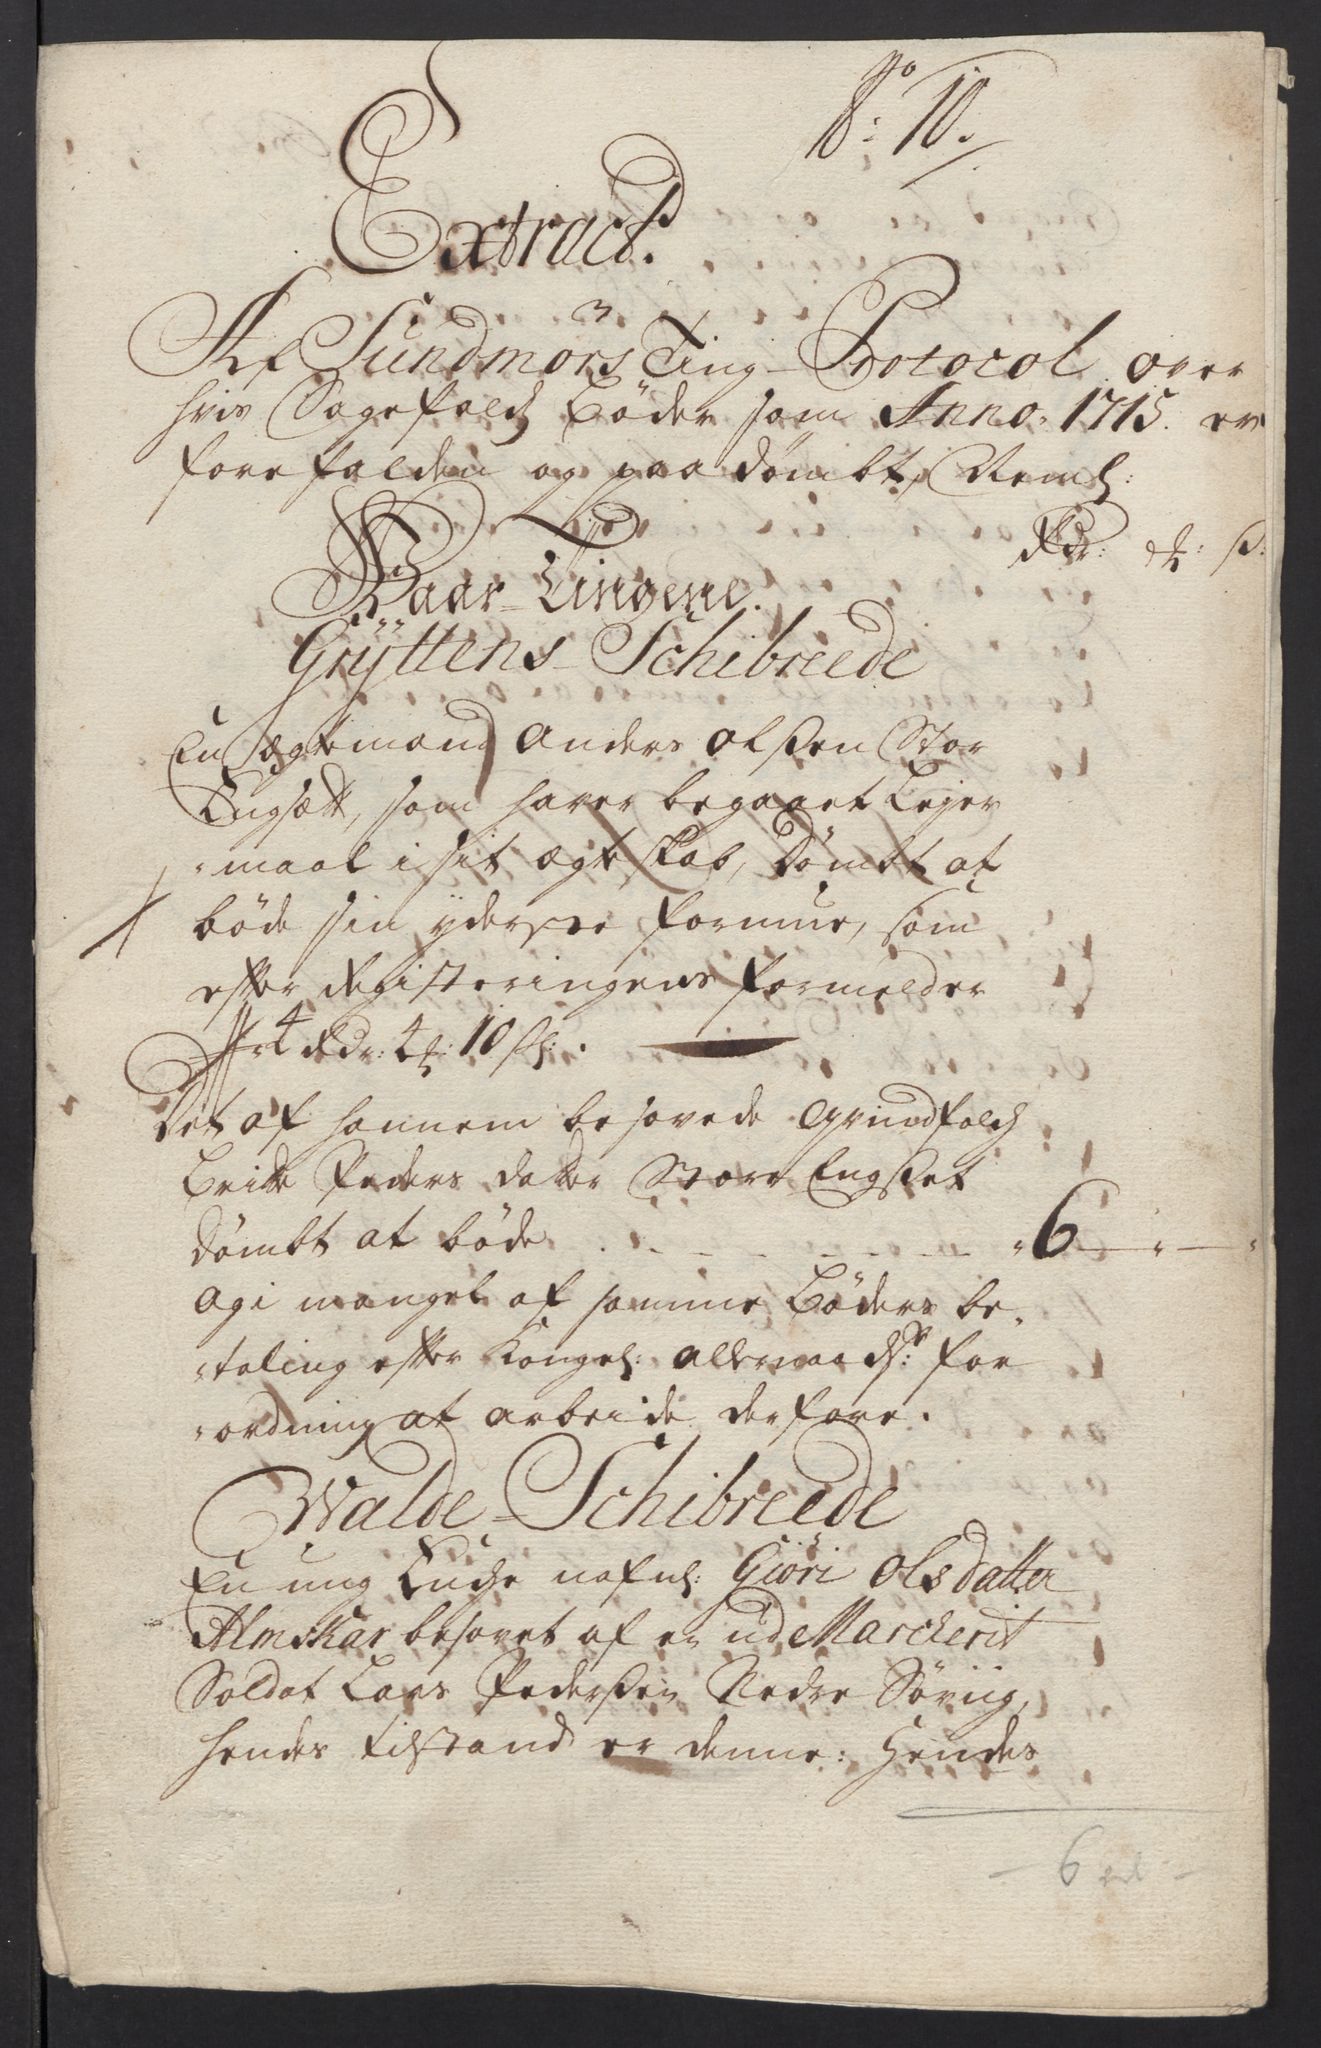 No 10.
Extract.
Af Sundmörs Ting-Protocol over
hvis Sagefalds Bøder som Anno 1715. er
forefalden og paadømbt, Neml:
Rdr: ort: s:
Vaar-Tingene.
Gryttens-Schibreede
En Egtemand Anders Olsøen Stor
Engsætt, som haver begaaet Lejer
-maal i sit ægteskab, dømbt at
bøde sin yderste formue, som
efter Registeringens formelder
Er 4 Rdr: 2 ort: 10 s:
Det af hannem besovede qvindfolch
Britte Peders datter Store Engset
dømbt at bøde - - - 6 - " - "
og i mangel af samme Bøders be-
-taling efter Kongel: allernaadst: for
-ordning at arbeide derfore.
Walde-Schibreede
En ung Pidge nafnl: Giöri Olsdatter
Almskar besovet af en ud Marcherit
Soldat Lars Pedersøn Nedre Söviig,
hendes tilstand er denne: Hendes
- 6 rd -